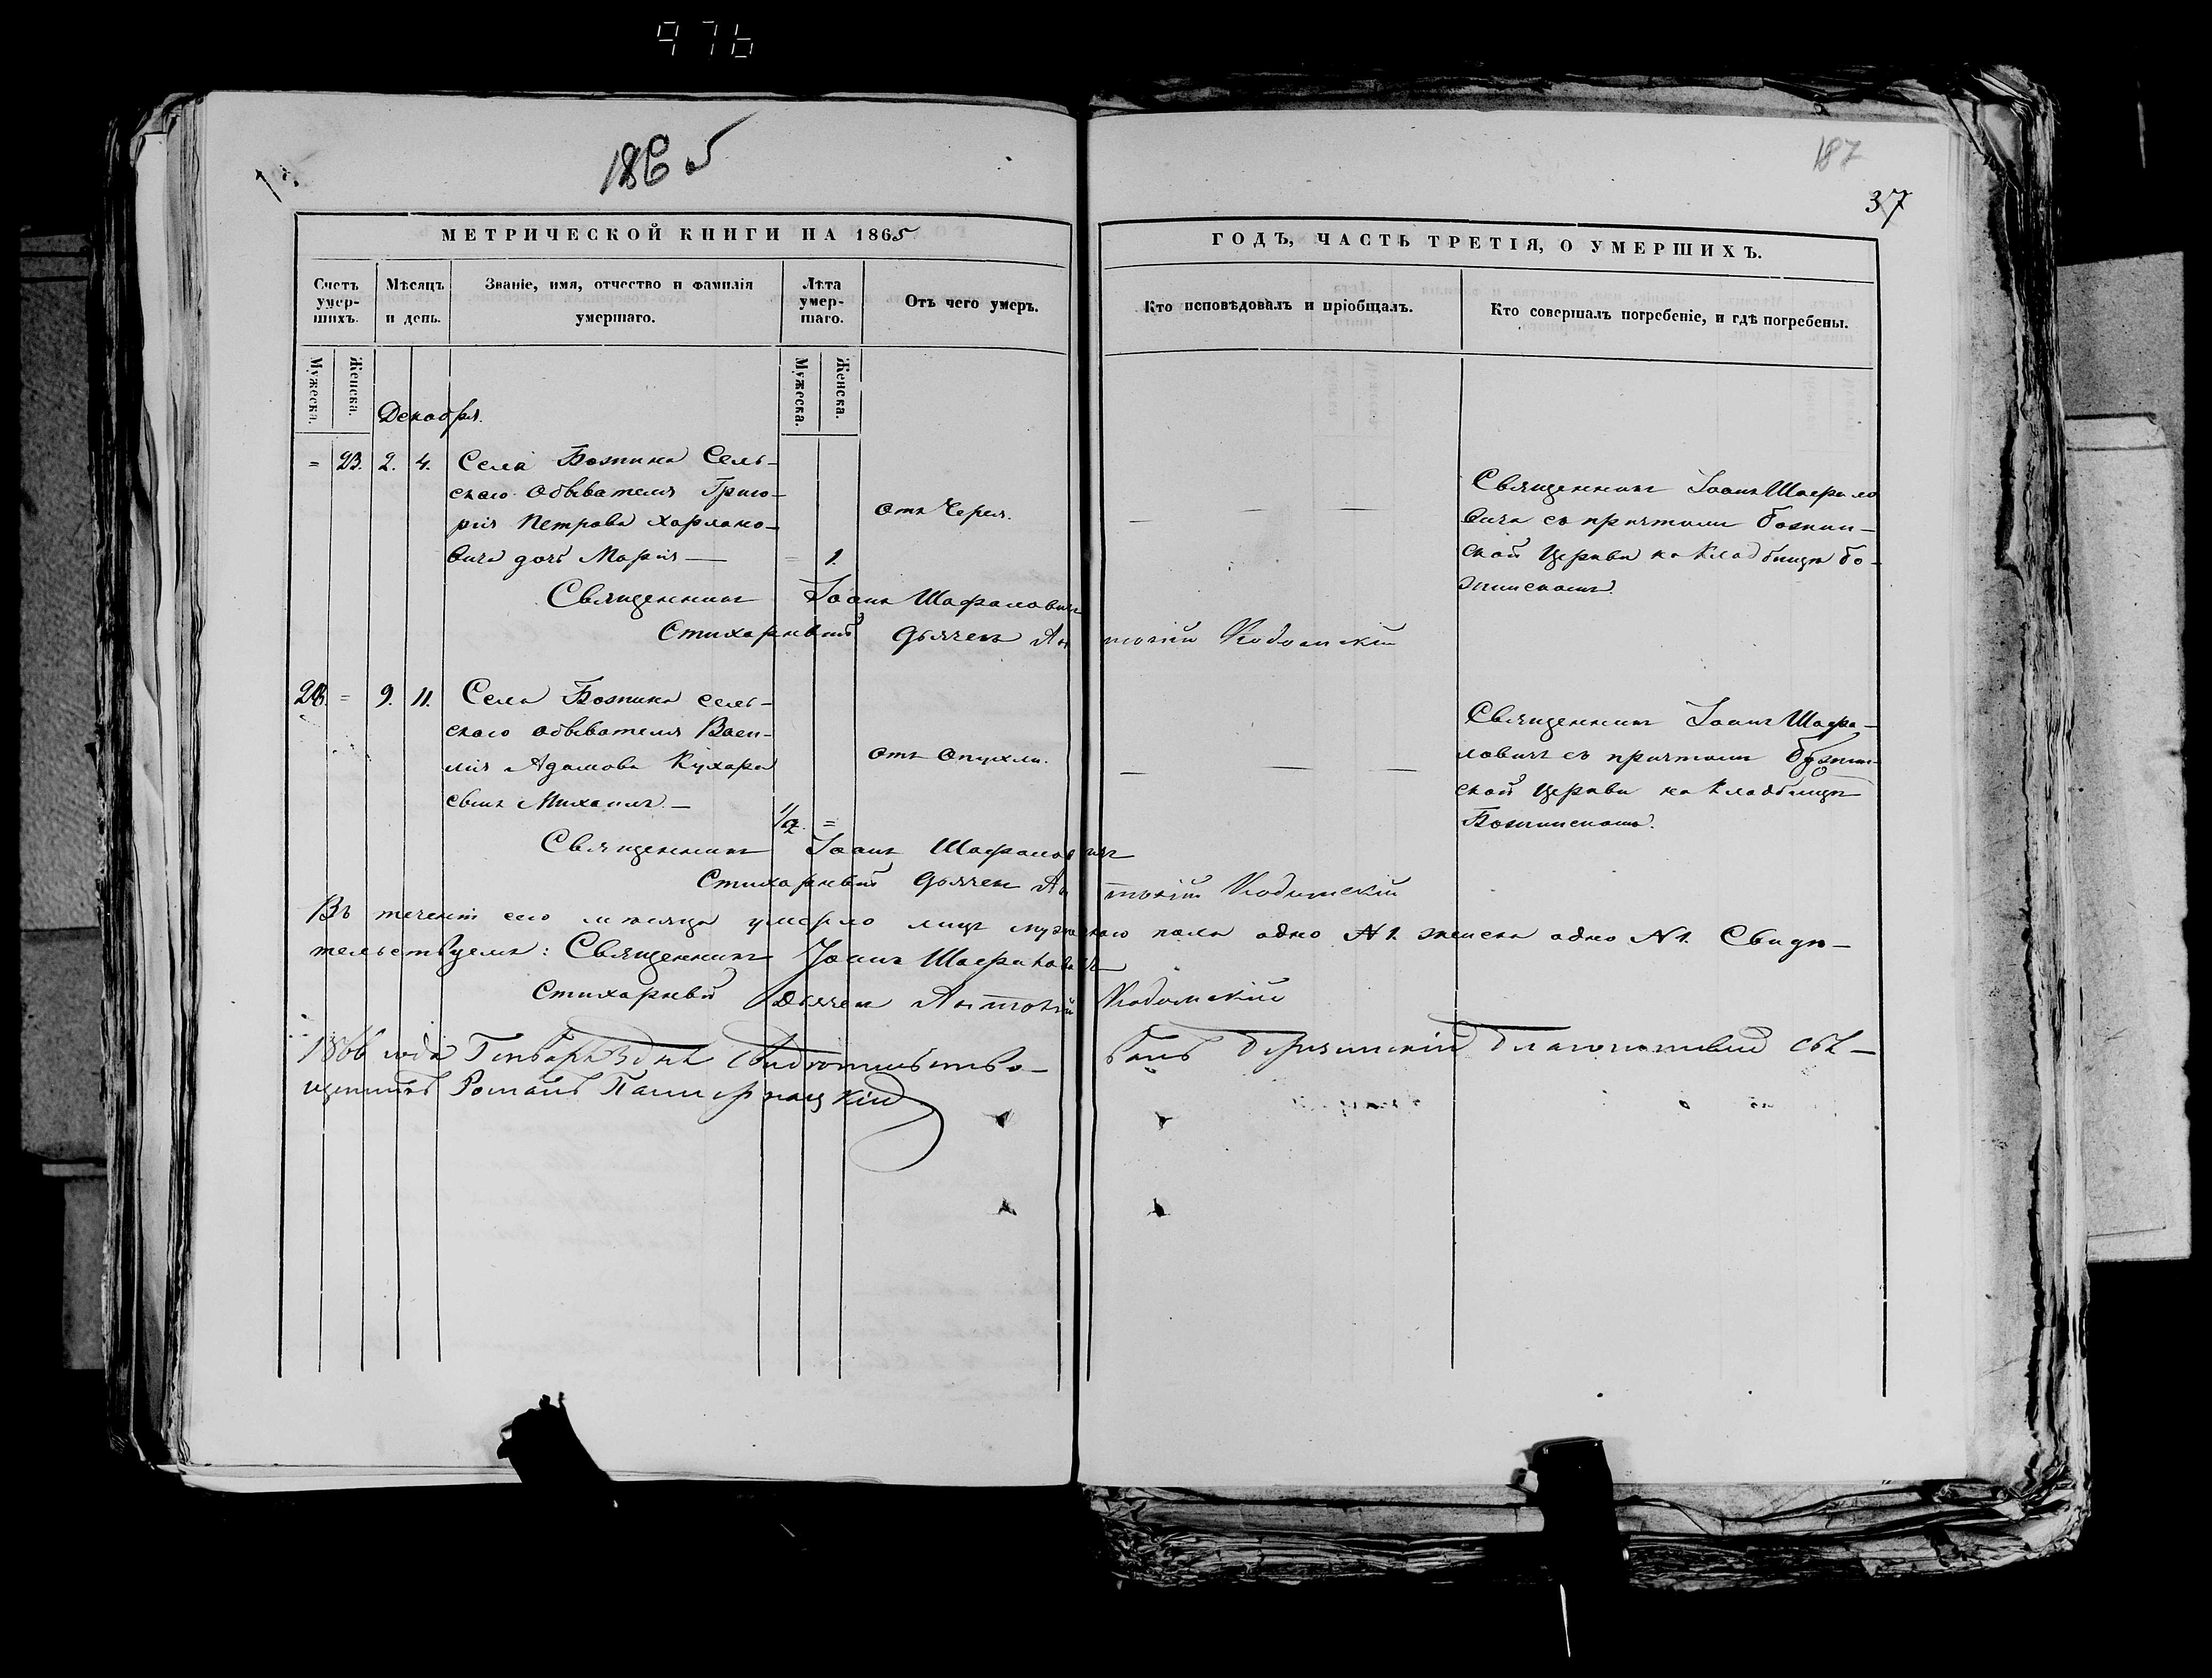 976
1865
187
37
МЕТРИЧЕСКОЙ КНИГИ НА 1865
ГОДЪ, ЧАСТЬ ТРЕТІЯ, О УМЕРШИХЪ.
Счетъ умер-шихъ.
Мѣсяцъ и день.
Званіе, имя, отчество и фамилія умершаго.
Лѣта умер-шаго.
Отъ чего умеръ.
Кто исповѣдовалъ и пріобщалъ.
Кто совершалъ погребеніе, и гдѣ погребены.
Мужеска.
Женска.
Мужеска.
Женска.
Декабря.
= 23. 2. 4. Села Божика Сель-
скаго обывателя Григо-
рія Петрова Харлано-
вича дочь Марія — = 1.
отъ Черея.
— — —
Священникъ Іоанъ Шафрало
вичъ съ причтомъ божии-
ской Церкви на Кладбищѣ бо-
жиискомъ.
Священникъ Іоанъ Шафраловичъ
Стихарный дьячекъ Антоній
= 9. 11. Села Божика сель-
скаго обывателя Васи-
лія Адамова Кухаря
сынъ Михаилъ. — 1/2. =
отъ Опухли.
— — —
Священникъ Іоанъ Шафра-
ловичъ съ причтомъ
ской Церкви на Кладбищѣ
Божиискомъ.
Священникъ Іоанъ Шафраловичъ
Стихарный дьячекъ Антоній
Въ теченіи сего мѣсяца умерло лицъ мужескаго пола одно №1. женска одно №1. Свидѣ-
тельствуемъ: Священникъ Іоанъ
Стихарный Дьячекъ Антоній
1866 года Генваря 3 дня Свидѣтельство-
валъ Благочинный Свя-
щенникъ Романъ